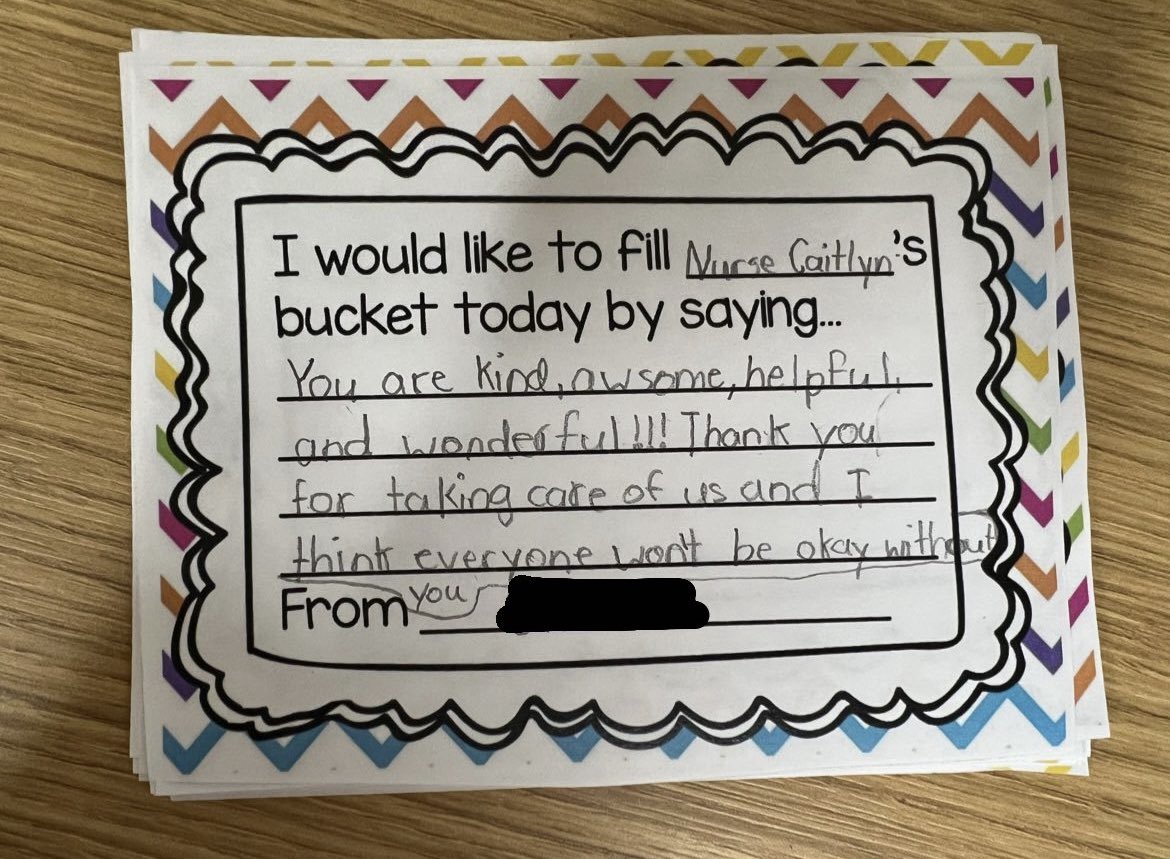 I would like to fill Nurse Caitlyn's
bucket today by saying...
You are kind, awsome, helpful,
and wonderful!!! Thank you
for taking care of us and I
think everyone won't be okay without
you
From